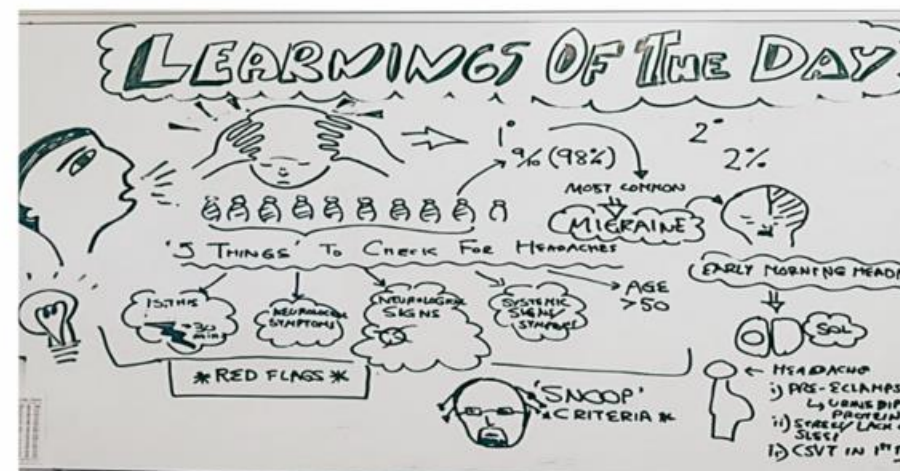 LEARNINGS OF THE DAY
1° 2°
9/10 (98%) 2%
MOST COMMON
MIGRAINE
'5 THINGS' TO CHECK FOR HEADACHES
EARLY MORNING HEAD
IS THIS
30
MIN
NEUROLOGICAL
SYMPTOMS
NEUROLOGICAL
SIGNS
SYSTEMIC
SIGNS/
SYMPTOMS
AGE
>50
SOL
* RED FLAGS *
'SNOOP'
* CRITERIA *
HEADACHE
i) PRE-ECLAMPS
URINE DIP
PROTEIN
ii) STRESS/LACK
SLEEP
CSVT IN 1ST